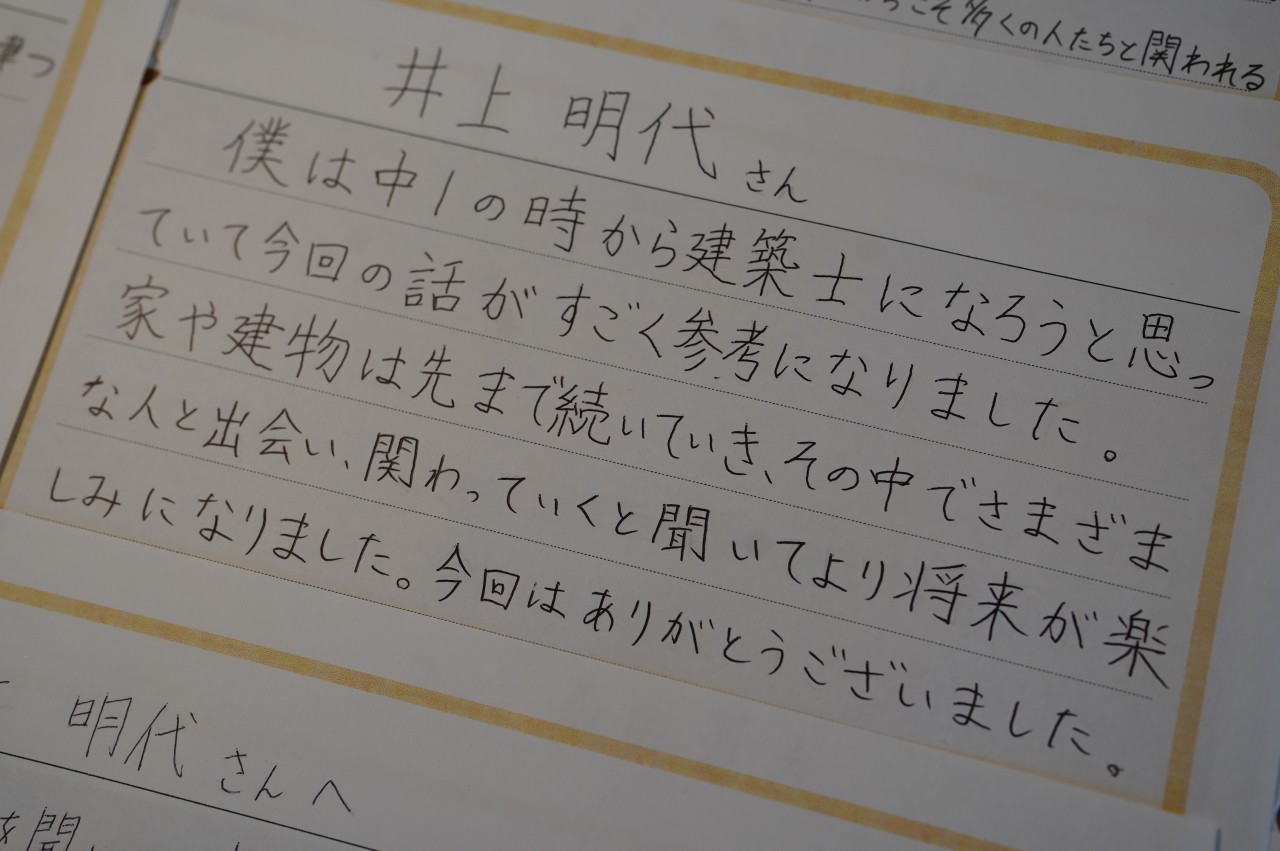 こそ多くの人たちと関われる
井上 明代さん
僕は中1の時から建築士になろうと思っ
ていて今回の話がすごく参考になりました。
家や建物は先まで続いていき、その中でさまざま
な人と出会い、関わっていくと聞いてより将来が楽
しみになりました。今回はありがとうございました。
明代さんへ